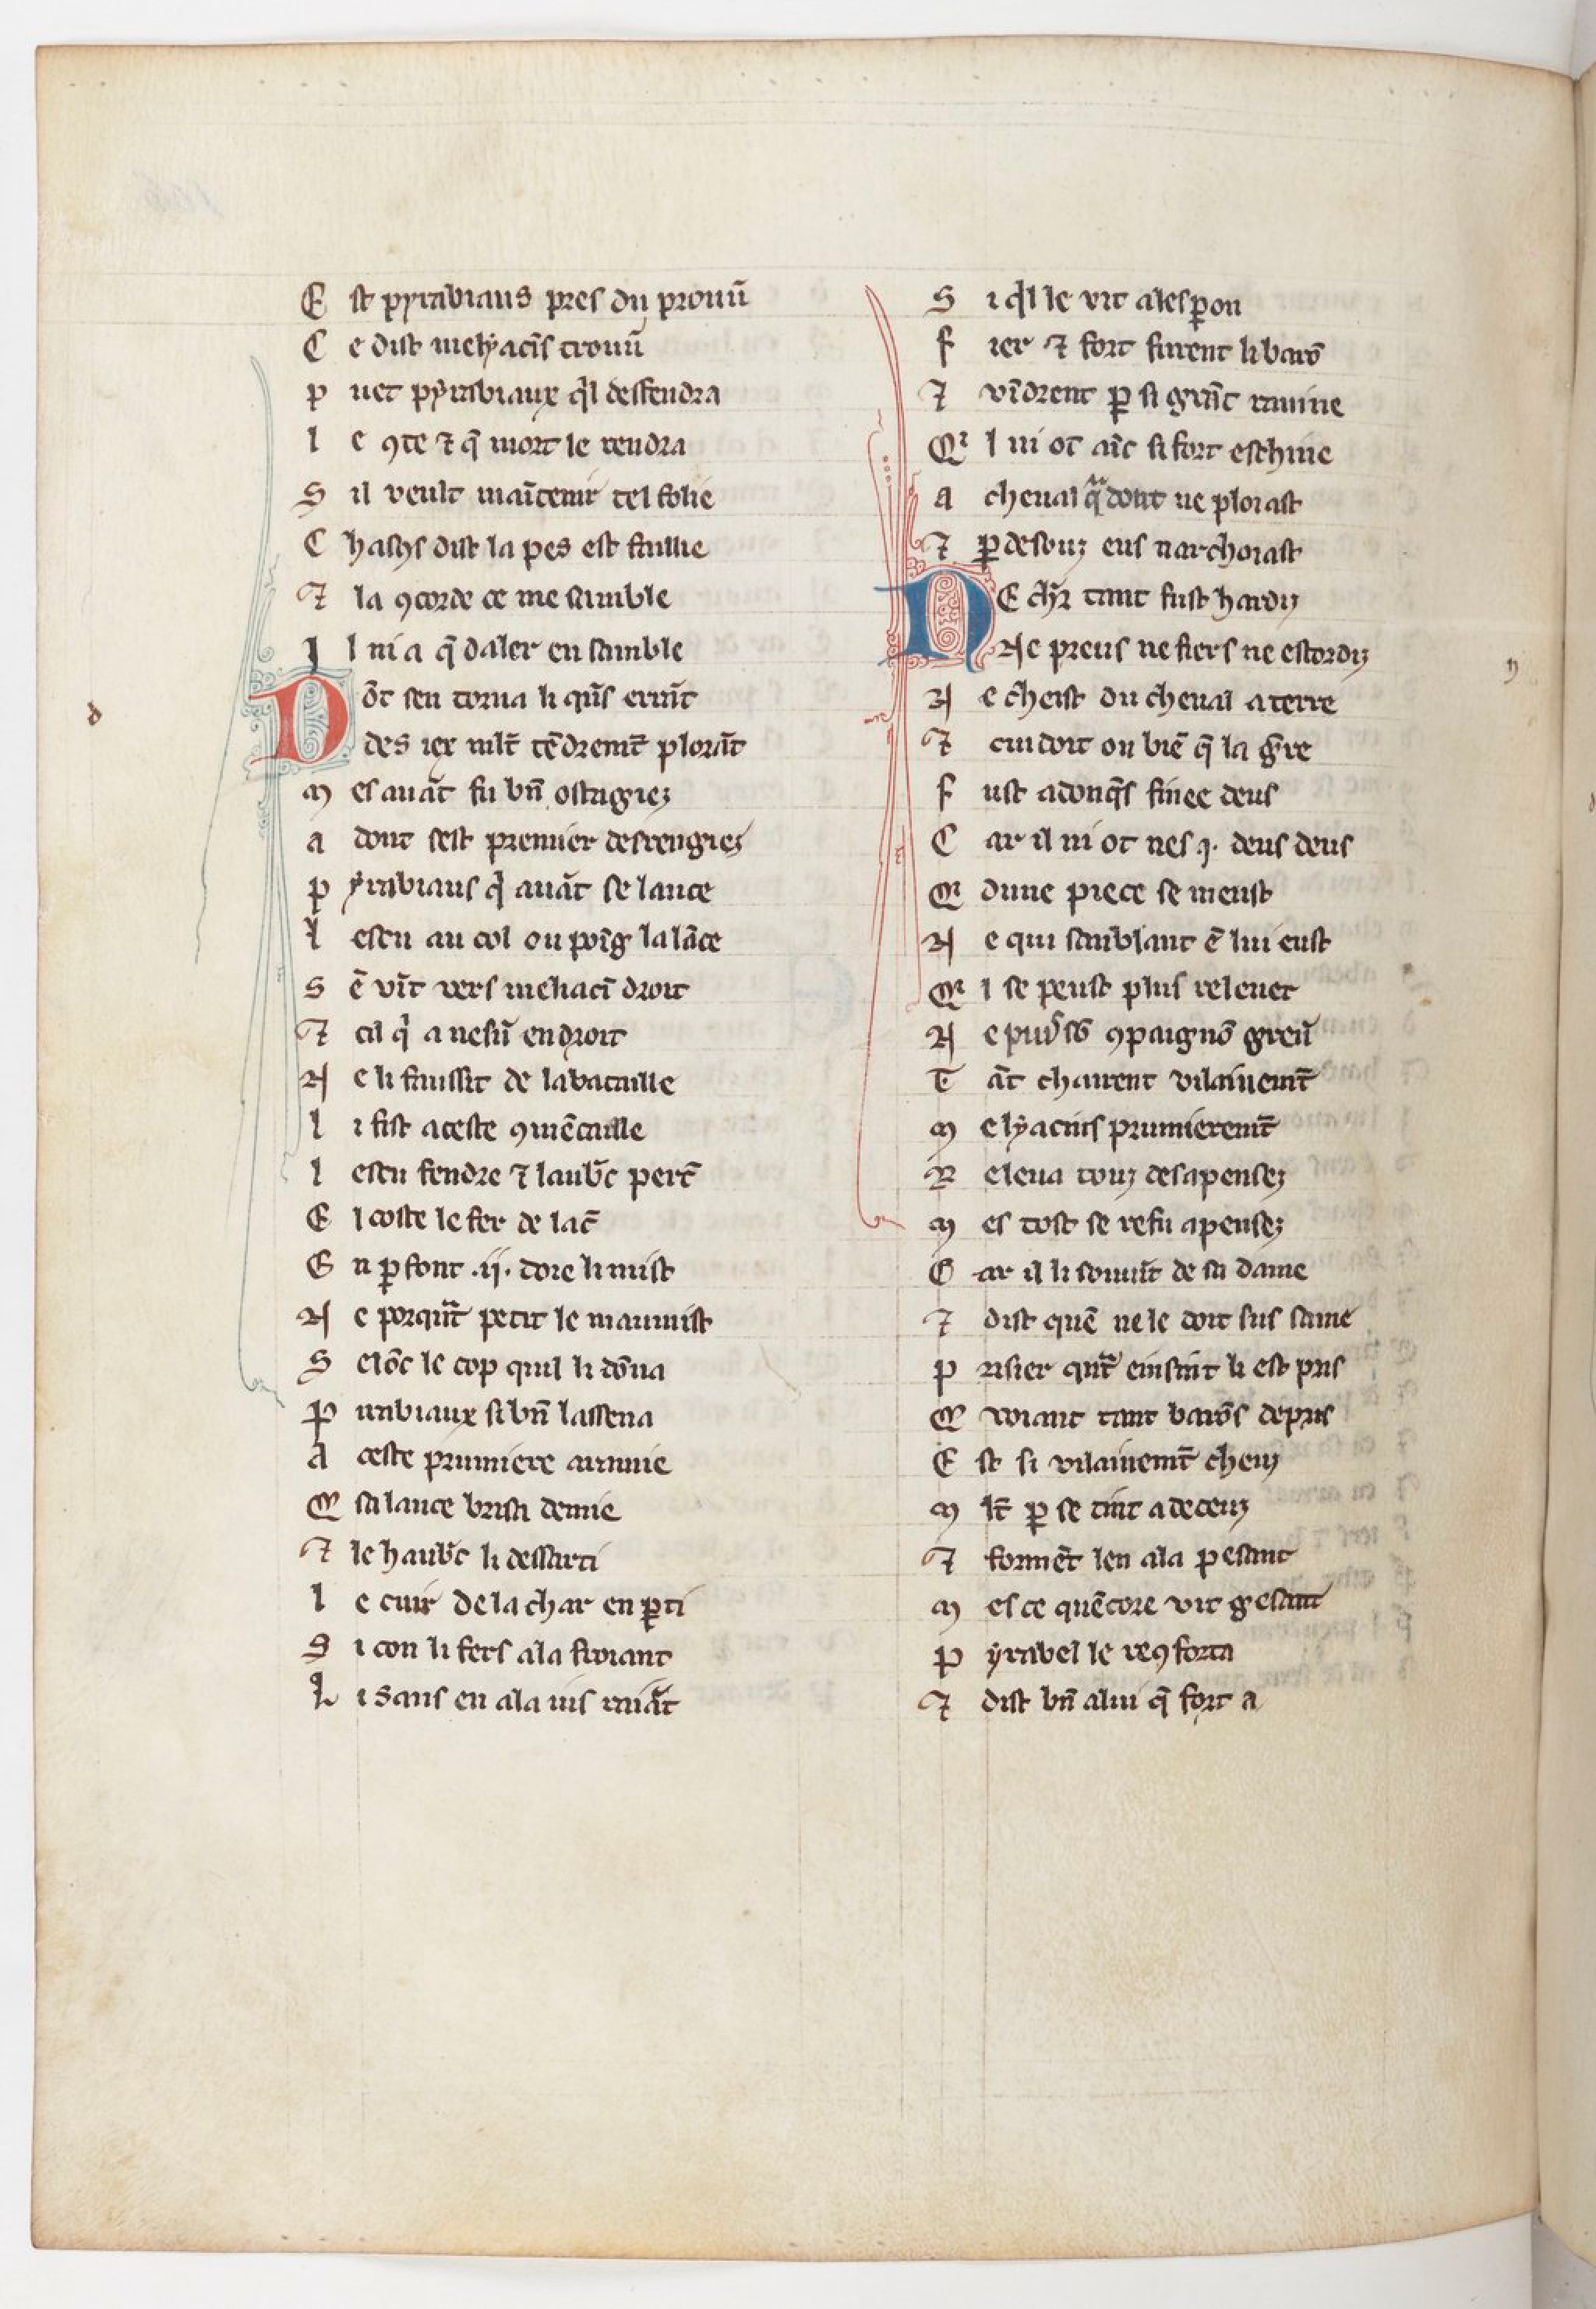 E st pyrabiaus pres du prouū
C e dist melẏacīs trouū
P uet pẏrabiaux q̓l deffendra
L e ꝯte ⁊ q̄ mort le rendra
S il veult maītenir tel folie
C hasc̓s dist la pes est faillie
⁊ la ꝯcorde ce me samble
I l ni a q̄ daler en samble
D ōt sen torna li qūs erāt
des iex mlt̄ tēdremt̄ plorāt
M es auāt fu bn̄ ostagiez
A dont sest premier desrengiez
P ẏrabiaus q̓ auāt se lance
L escu au col ou poīg la lāce
S ē vīt vers meliacī droit
⁊ cil q̓ a nesū endroit
N e li fausist de la bataille
L i fist a ceste ꝯmēcaille
L escu fendre ⁊ laub̄c perc̄
E l coste le fer de lac̄
E n ꝑfont .ij. doie li mist
N e porquāt petit le maumist
S elōc le cop quil li dōna
P irabiaux si bn̄ lassena
A ceste prumiere aramie
Q sa lance brisa demie
⁊ le haub̄c li dessarti
L e cuir de la char en ꝑti
S i con li fers ala froiant
L i sans en ala ius raiāt
S i q̓l le vit a lesꝑon
F ier ⁊ fort furent li barō
⁊ vīdrent ꝑ si grāt rauine
Qⁱ l ni ot aīc si fort eschine
A cheual q̄ᵃ dont ne plorast
⁊ ꝑdesouz eus narchorast
N E chr̄ tant fust hardy
Ne preus ne fiers ne estordy
N e cheist du cheual a terre
⁊ cuidoit on biē q̄ la gr̄re
F ust adonq̄s finee deus
C ar il ni ot nes .j. deus deus
Qⁱ dune piece se meust
N e qui samblant ē lui eust
Qⁱ l se peust plus releuer
N e pud̓ sās ꝯpaignō greū
T āt chairent vilainemt̄
M elẏacins prumieremt̄
R eleua touz desapensez
M es tost se refu apensez
C ar il li souuīt de sa dame
⁊ dist quē ne le doit sus same
P risier quāt einsint li est pris
Q voiant tant barōs de pris
E st si vilainemt̄ cheuz
M lt̄ ꝑ se tint a deceuz
⁊ formēt len ala pesant
M es ce quēcore vit gesant
P ẏrabel le reꝯforta
⁊ dist bn̄ a lui q̄ fort a
d
n